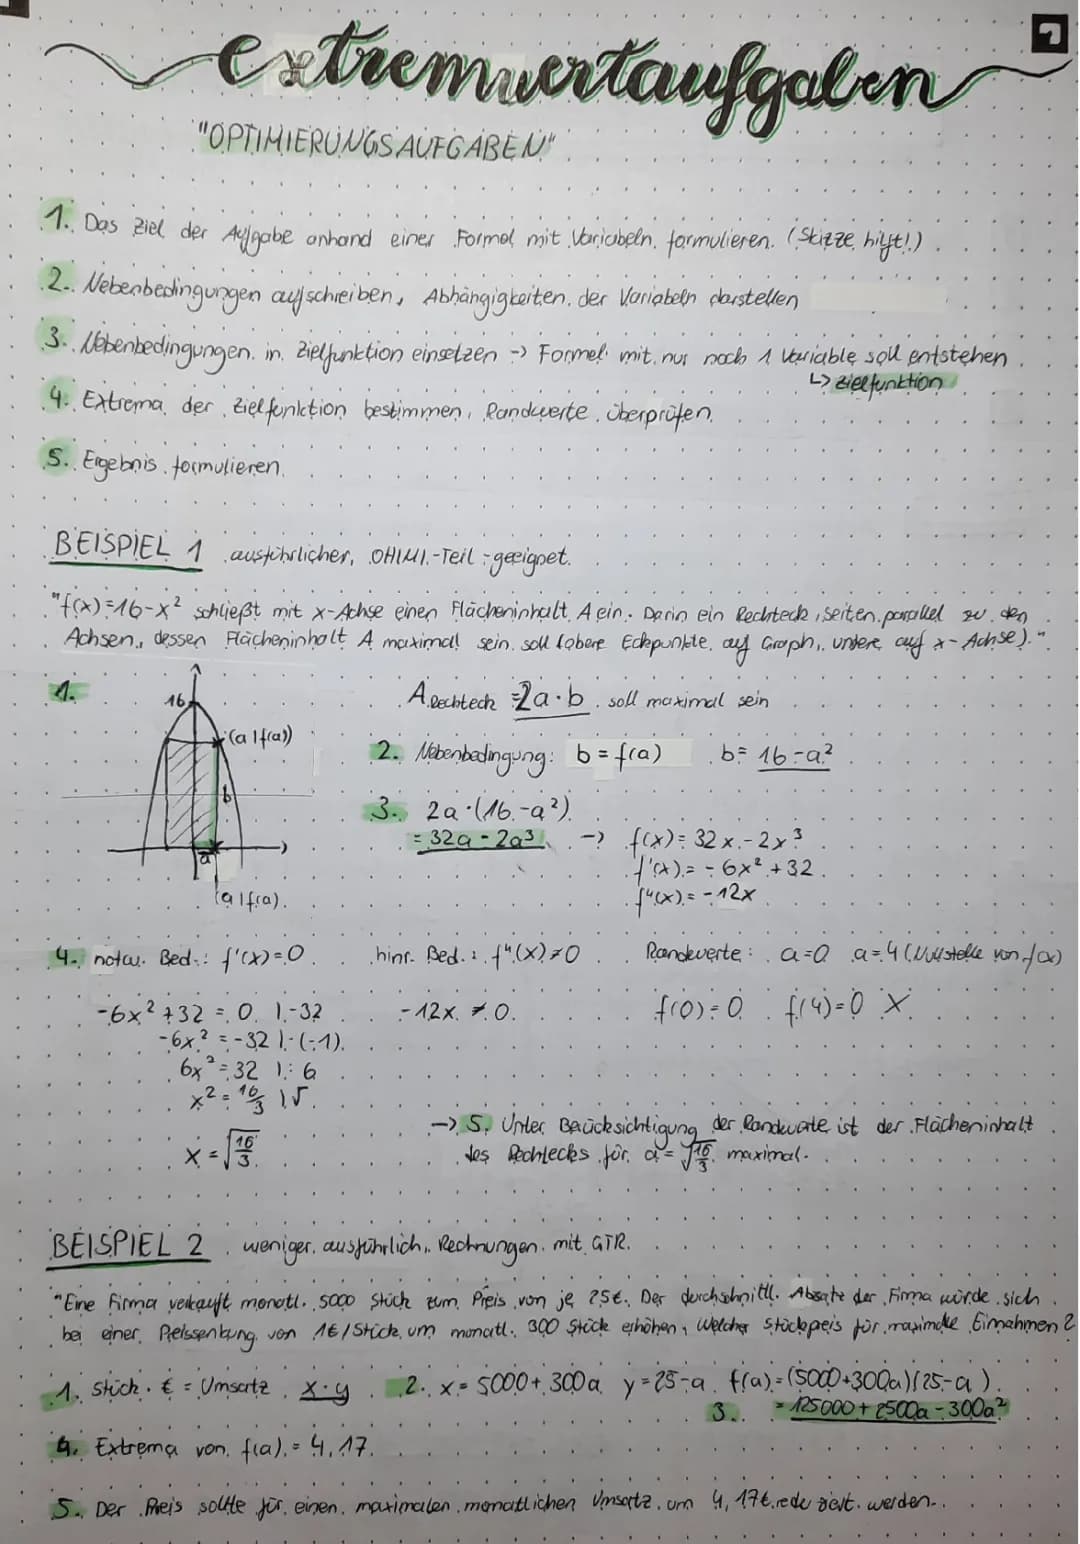 extremwertaufgaben
"OPTIMIERUNGSAUFGABEN"
1. Das Ziel der Aufgabe anhand einer Formel mit Variabeln formulieren. (Skizze hilft!)
2. Nebenbedingungen aufschreiben, Abhängigkeiten der Variabeln darstellen
3. Nebenbedingungen in Zielfunktion einsetzen -> Formel mit nur noch 1 Variable soll entstehen
↳ Zielfunktion
4. Extrema der Zielfunktion bestimmen, Randwerte überprüfen
5. Ergebnis formulieren
BEISPIEL 1 ausführlicher, OHIMI-Teil-geeignet.
"f(x)=16-x² schließt mit x-Achse einen Flächeninhalt A ein. Darin ein Rechteck, Seiten parallel zu den
Achsen, dessen Flächeninhalt A maximal sein soll (obere Eckpunkte auf Graph, untere auf x-Achse)."
1. 16 A Rechteck = 2a · b soll maximal sein
(a|f(a)) 2. Nebenbedingung: b = f(a) b = 16-a²
b 3. 2a·(16-a²)
a = 32a - 2a³ -> f(x) = 32x - 2x³
f'(x) = -6x² + 32
(a|f(a) f"(x) = -12x
4. notw. Bed.: f'(x)=0 hinr. Bed.: f"(x)≠0 Randwerte: a=0 a=4 (Nullstelle von f(x)
-6x² + 32 = 0 |-32 -12x ≠ 0 f(0)=0 f(4)=0 X
-6x² = -32 |·(-1)
6x² = 32 |:6
x² = 16/3 |√
-> 5. Unter Berücksichtigung der Randwerte ist der Flächeninhalt
x = √16/3 des Rechtecks für a = √16/3 maximal.
BEISPIEL 2 weniger ausführlich, Rechnungen mit GTR.
"Eine Firma verkauft monatl. 5000 Stück zum Preis von je 25€. Der durchschnittl. Absatz der Firma würde sich
bei einer Preissenkung von 1€/Stück um monatl. 300 Stück erhöhen, Welcher Stückpreis für maximale Einnahmen?
1. Stück · € = Umsatz x·y 2. x = 5000 + 300a y = 25-a f(a) = (5000+300a)(25-a)
3. = 125000 + 2500a - 300a²
4. Extrema von f(a) = 4,17
5. Der Preis sollte für einen maximalen monatlichen Umsatz um 4,17€ reduziert werden.